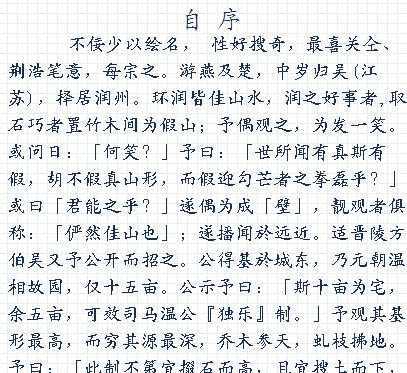 自 序
不佞少以绘名， 性好搜奇，最喜关仝、
荆浩笔意，每宗之。游燕及楚，中岁归吴(江
苏)，择居润州。环润皆佳山水，润之好事者,取
石巧者置竹木间为假山；予偶观之，为发一笑。
或问曰：「何笑？」予曰：「世所闻有真斯有
假，胡不假真山形，而假迎勾芒者之拳磊乎？」
或曰「君能之乎？」遂偶为成「壁」，靓观者俱
称：「俨然佳山也」；遂播闻於远近。适晋陵方
伯吴又予公闻而招之。公得基於城东，乃元朝温
相故园，仅十五亩。公示予曰：「斯十亩为宅，
余五亩，可效司马温公『独乐』制。」予观其基
形最高，而穷其源最深，乔木参天，虬枝拂地。
予曰：「此制不第宜掇石而高，且宜搜土而下，